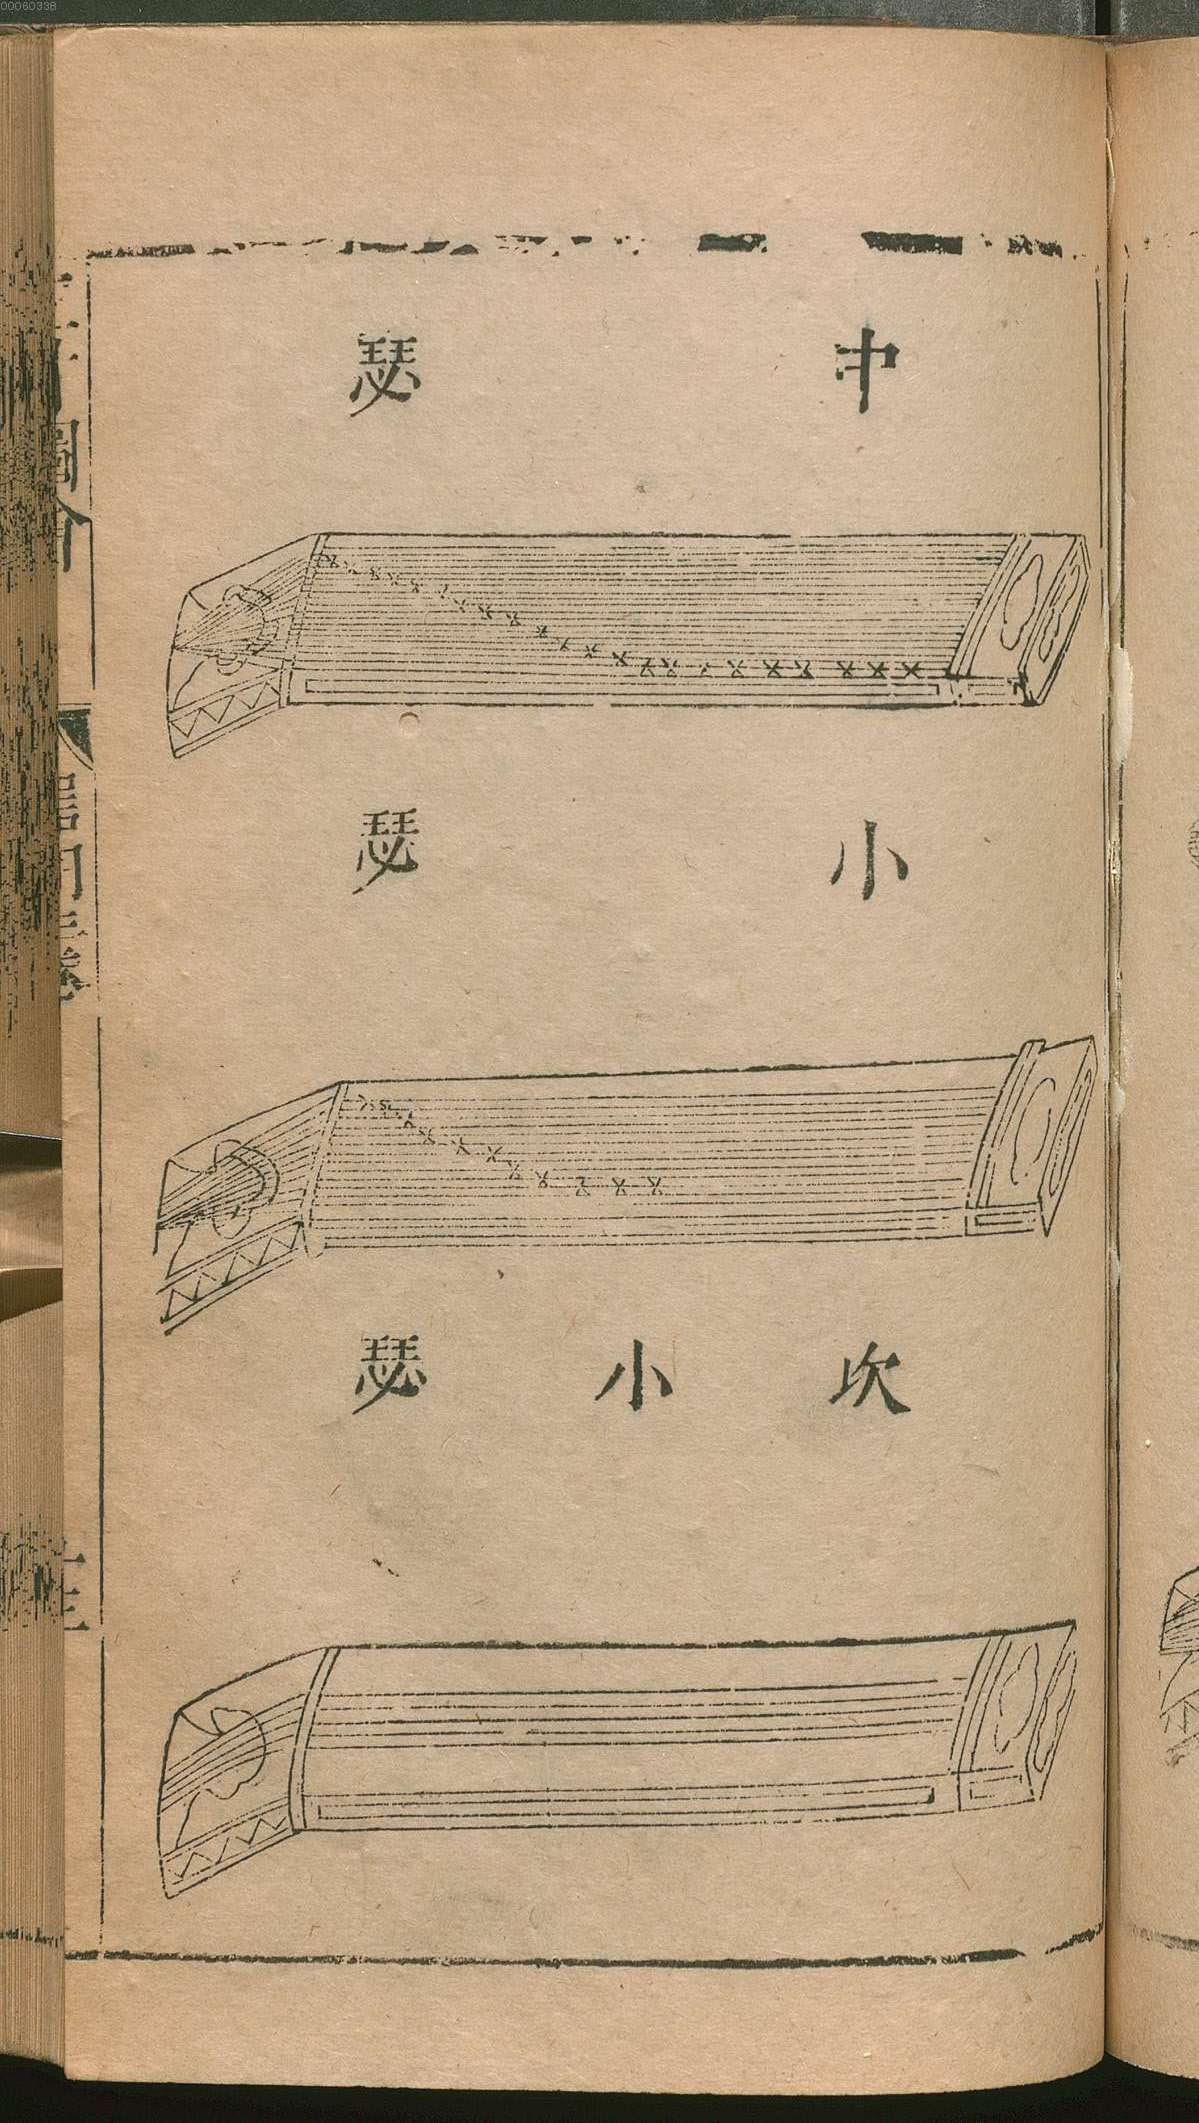 00060338
中瑟
小瑟
次小瑟